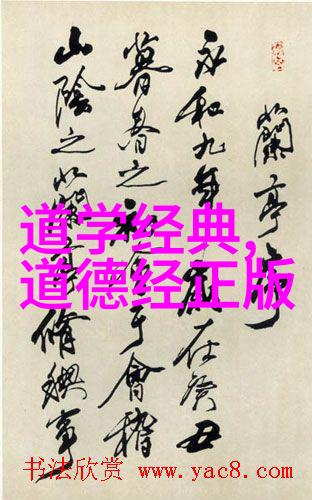 蘭亭序
永和九年歲在癸丑
暮春之初會于會稽
山陰之蘭亭脩禊事
道学经典,
道德经正版
书法欣赏 www.yac8.com